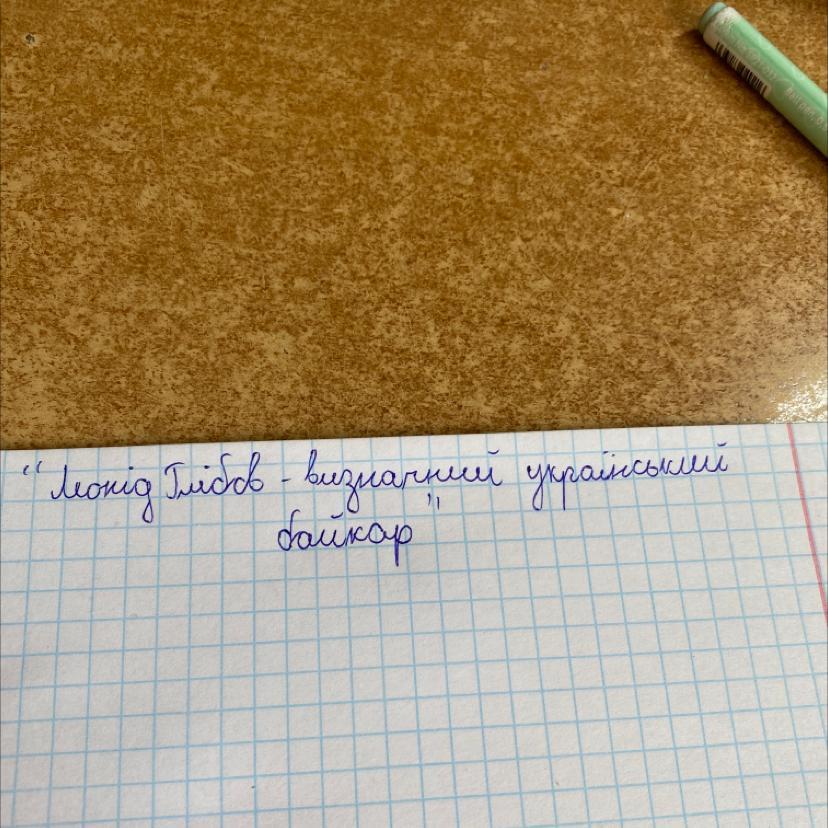 "Леонід Глібов - визначний український
байкар"